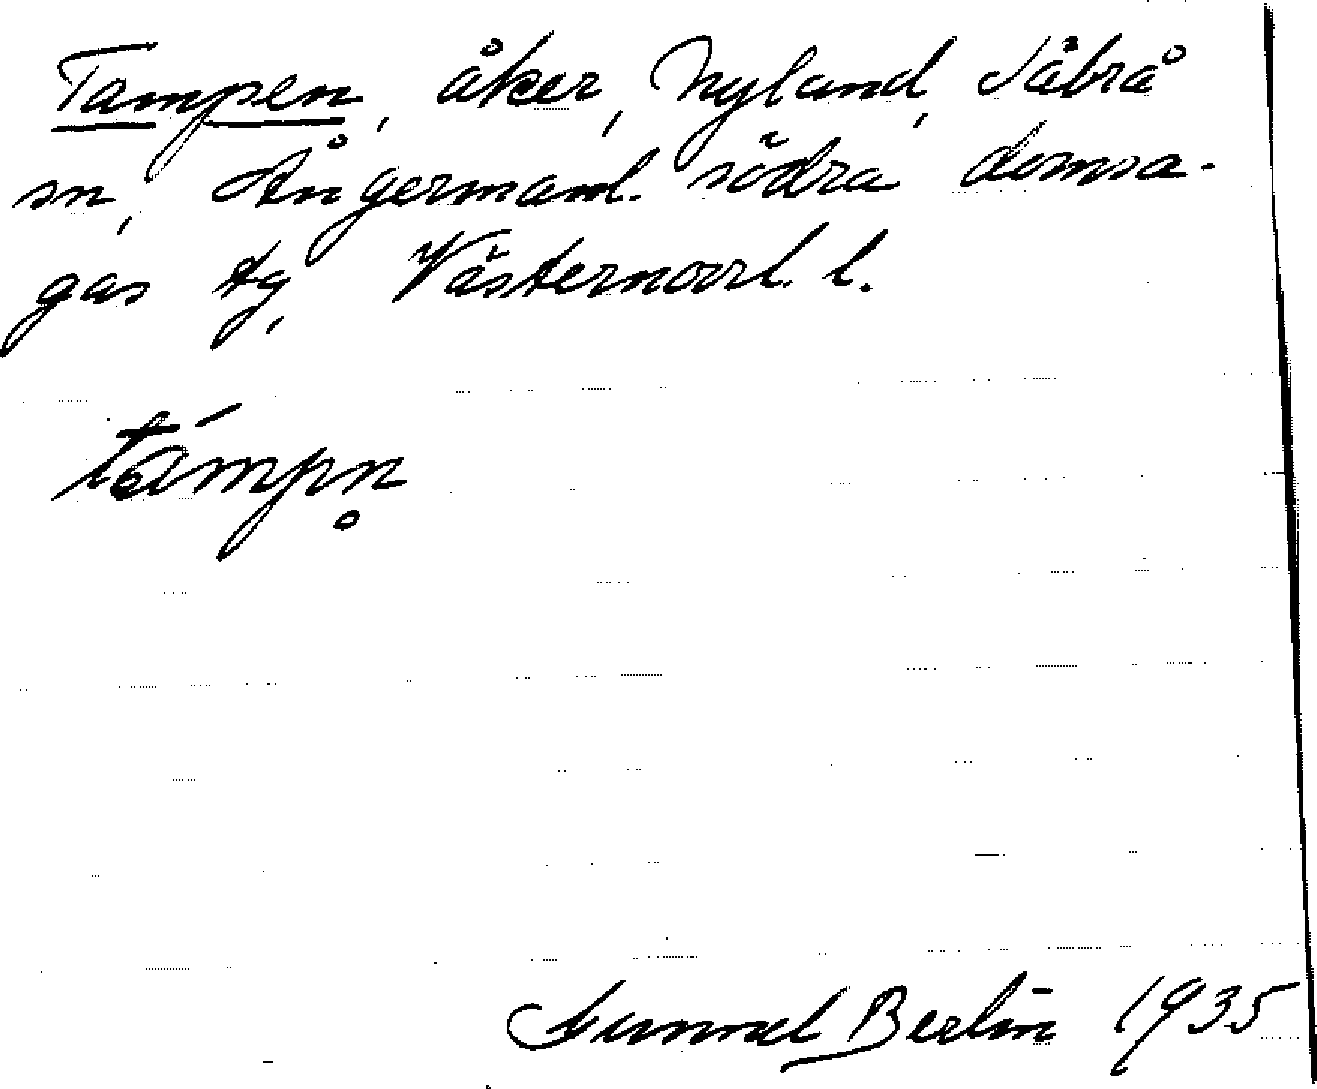 Tampen, åker, Nyland, Säbrå
sn, Ångermanl. södra domsa-
gas tg, Västernorrl. l.
támpn̥
Gunnel Berlin 1935